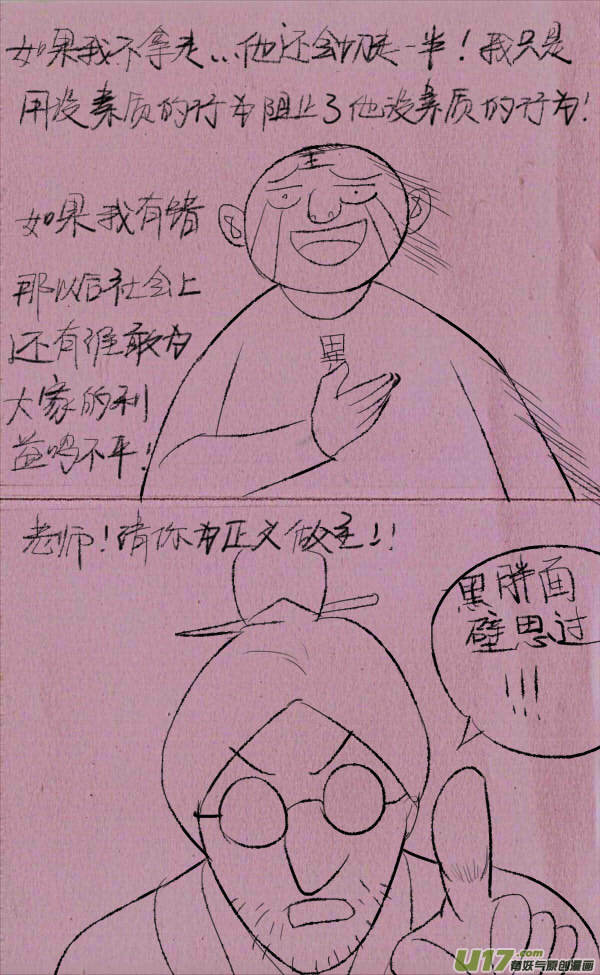 如果我不拿走...他还会切走一半！我只是
用没素质的行为阻止了他没素质的行为！
如果我有错
那以后社会上
还有谁敢为
大家的利
益鸣不平！
黑
老师！请你为正义做主！！
黑胖面
壁思过
!!!
U17.com
有妖气原创漫画